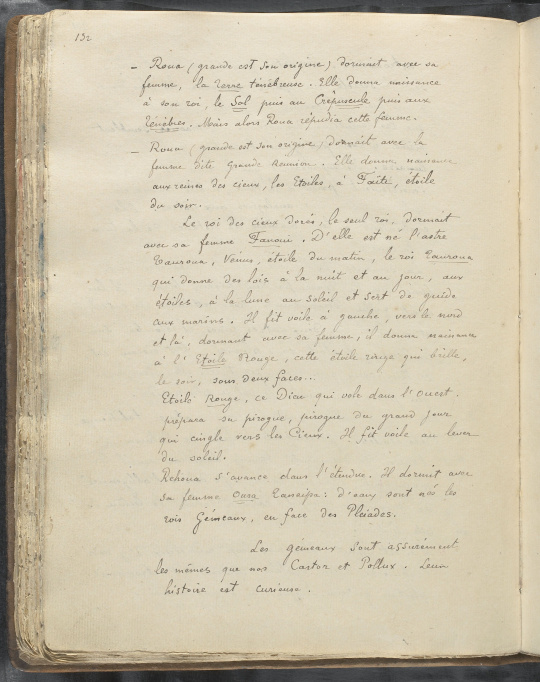 132
— Roua (grande est son origine) dormait avec sa
femme, la Terre ténébreuse. Elle donna naissance
à son roi, le Sol puis au Crépuscule puis aux
Ténèbres. Mais alors Roua répudia cette femme.
— Roua (grande est son origine) dormait avec la
femme dite Grande Réunion. Elle donna naissance
aux reines des cieux, les Etoiles, à Faïti, étoile
du soir.
Le roi des cieux dorés, le seul roi, dormait
avec sa femme Fanoui. D'elle est né l'astre
Tauroua, Vénus, étoile du matin, le roi Tauroua
qui donne des lois à la nuit et au jour, aux
étoiles, à la lune au soleil et sert de guide
aux marins. Il fit voile à gauche, vers le nord
et là, dormant avec sa femme, il donna naissance
à l'Etoile Rouge, cette étoile rouge qui brille,
le soir, sous deux faces..
Etoile Rouge, ce Dieu qui vole dans l'Ouest.
prépara sa pirogue, pirogue du grand jour
qui cingle vers les Cieux. Il fit voile au lever
du soleil.
Rehoua s'avance dans l'étendue. Il dormit avec
sa femme Oura Taneipa: d'eux sont nés les
rois Gémeaux, en face des Pléiades.
Les gémeaux sont assurément
les mêmes que nos Castor et Pollux. Leur
histoire est curieuse.